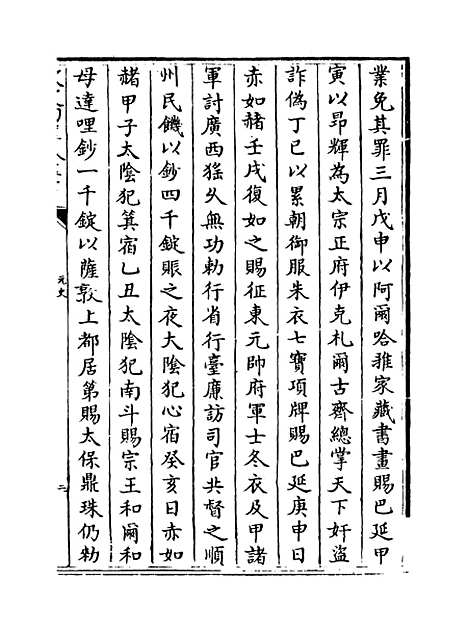 業免其罪三月戊申以阿爾哈雅家藏書畫賜巴延甲
寅以昂輝為太宗正府伊克札爾古齊總掌天下奸盜
詐偽丁巳以累朝御服朱衣七寶項牌賜巴延庚申日
赤如赭壬戌復如之賜征東元帥府軍士冬衣及甲諸
軍討廣西猺久無功勅行省行臺廉訪司官共督之順
州民饑以鈔四千錠賑之夜太陰犯心宿癸亥日赤如
赭甲子太陰犯箕宿乙丑太陰犯南斗賜宗王和爾和
母達哩鈔一千錠以薩敦上都居第賜太保鼎珠仍勅
元史
二